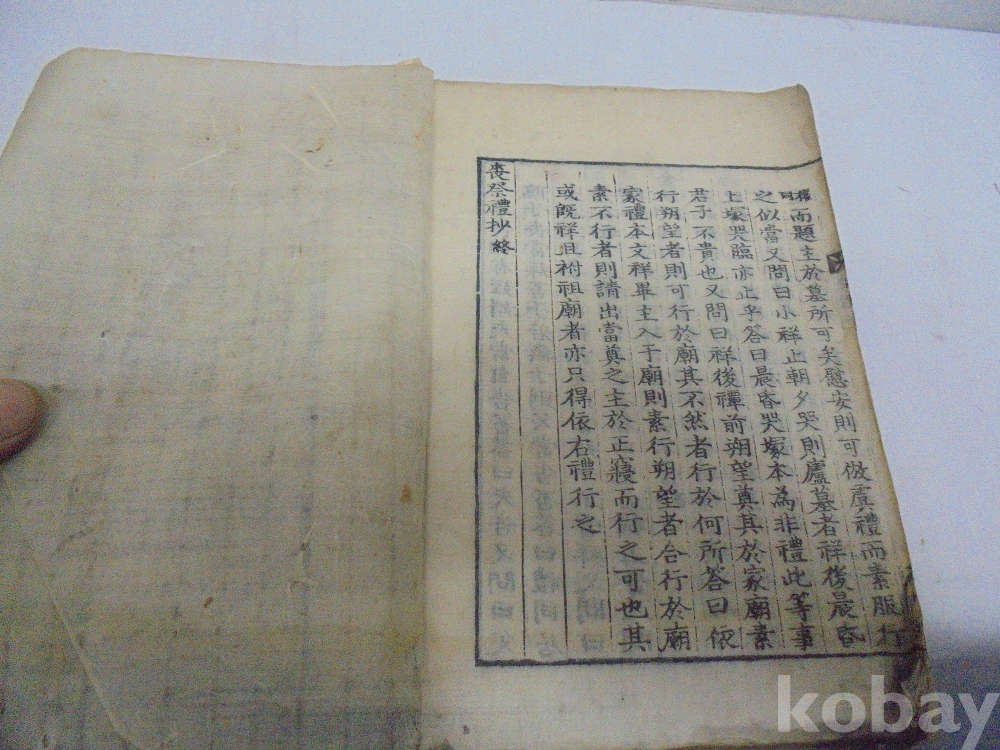 禫同而題主於墓所可矣慰安則可倣虞禮而素服行
之似當又問曰小祥止朝夕哭則廬墓者祥後晨昏
上塚哭臨亦止乎答曰晨昏哭塚本為非禮此等事
君子不貴也又問曰祥後禫前朔望奠其於家廟素
行朔望者則可行於廟其不然者行於何所答曰依
家禮本文祥畢主入于廟則素行朔望者合行於廟
素不行者則請出當奠之主於正寢而行之可也其
或既祥且祔祖廟者亦只得依右禮行之
喪祭禮抄終
kobay